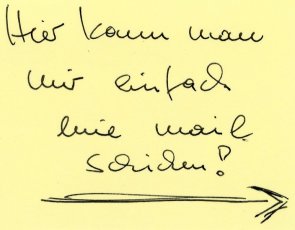 Hier kann man
mir einfach
eine mail
schicken!